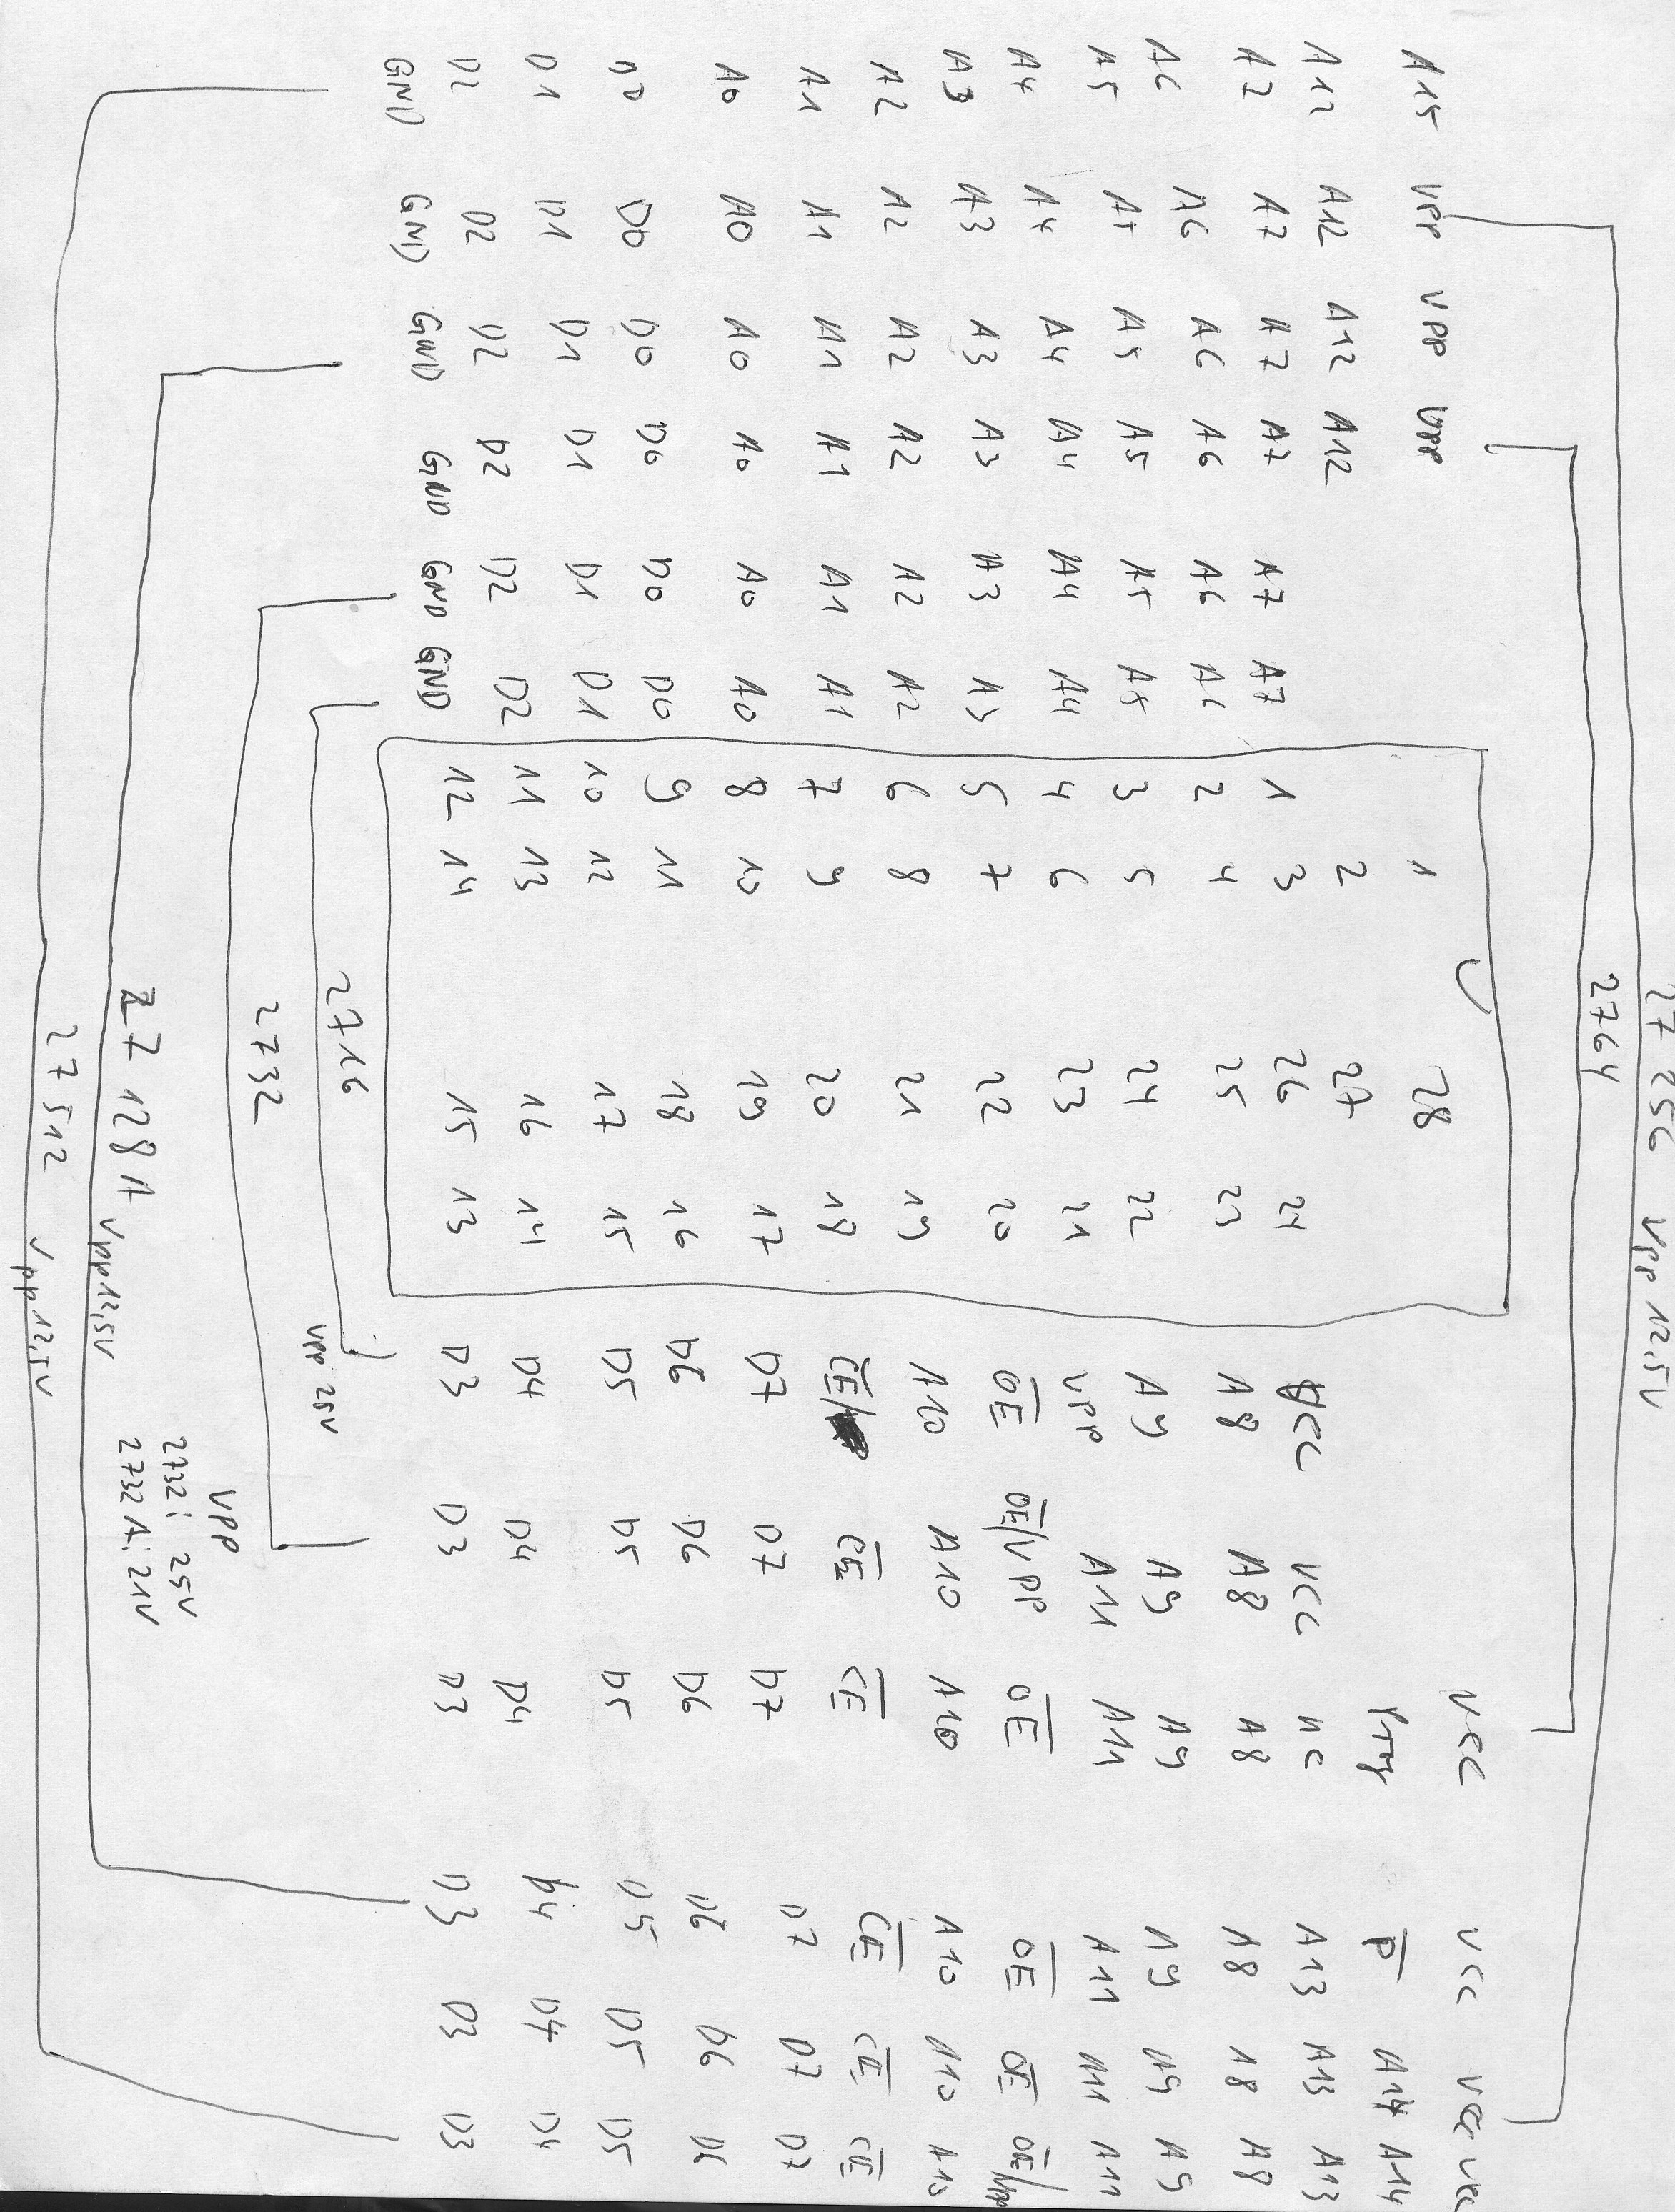 27256 Vpp 12,5V
2764
A15 Vpp Vpp Vpp 1 28 Vcc Vcc Vcc Vcc
A12 A12 A12 A12 2 27 P A14 A14
A7 A7 A7 A7 A7 A7 1 3 26 24 Vcc Vcc NC A13 A13 A13
A6 A6 A6 A6 A6 A6 2 4 25 23 A8 A8 A8 A8 A8 A8
A5 A5 A5 A5 A5 A5 3 5 24 22 A9 A9 A9 A9 A9 A9
A4 A4 A4 A4 A4 A4 4 6 23 21 Vpp A11 A11 A11 A11 A11
A3 A3 A3 A3 A3 A3 5 7 22 20 OE OE/Vpp OE OE OE OE/Vpp
A2 A2 A2 A2 A2 A2 6 8 21 19 A10 A10 A10 A10 A10 A10
A1 A1 A1 A1 A1 A1 7 9 20 18 CE/ CE CE CE CE CE
A0 A0 A0 A0 A0 A0 8 10 19 17 D7 D7 D7 D7 D7 D7
D0 D0 D0 D0 D0 D0 9 11 18 16 D6 D6 D6 D6 D6 D6
D1 D1 D1 D1 D1 D1 10 12 17 15 D5 D5 D5 D5 D5 D5
D2 D2 D2 D2 D2 D2 11 13 16 14 D4 D4 D4 D4 D4 D4
GND GND GND GND GND GND 12 14 15 13 D3 D3 D3 D3 D3 D3
2716 Vpp 25V
2732
Vpp
2732: 25V
2732A: 21V
27128A Vpp12,5V
27512 Vpp12,5V